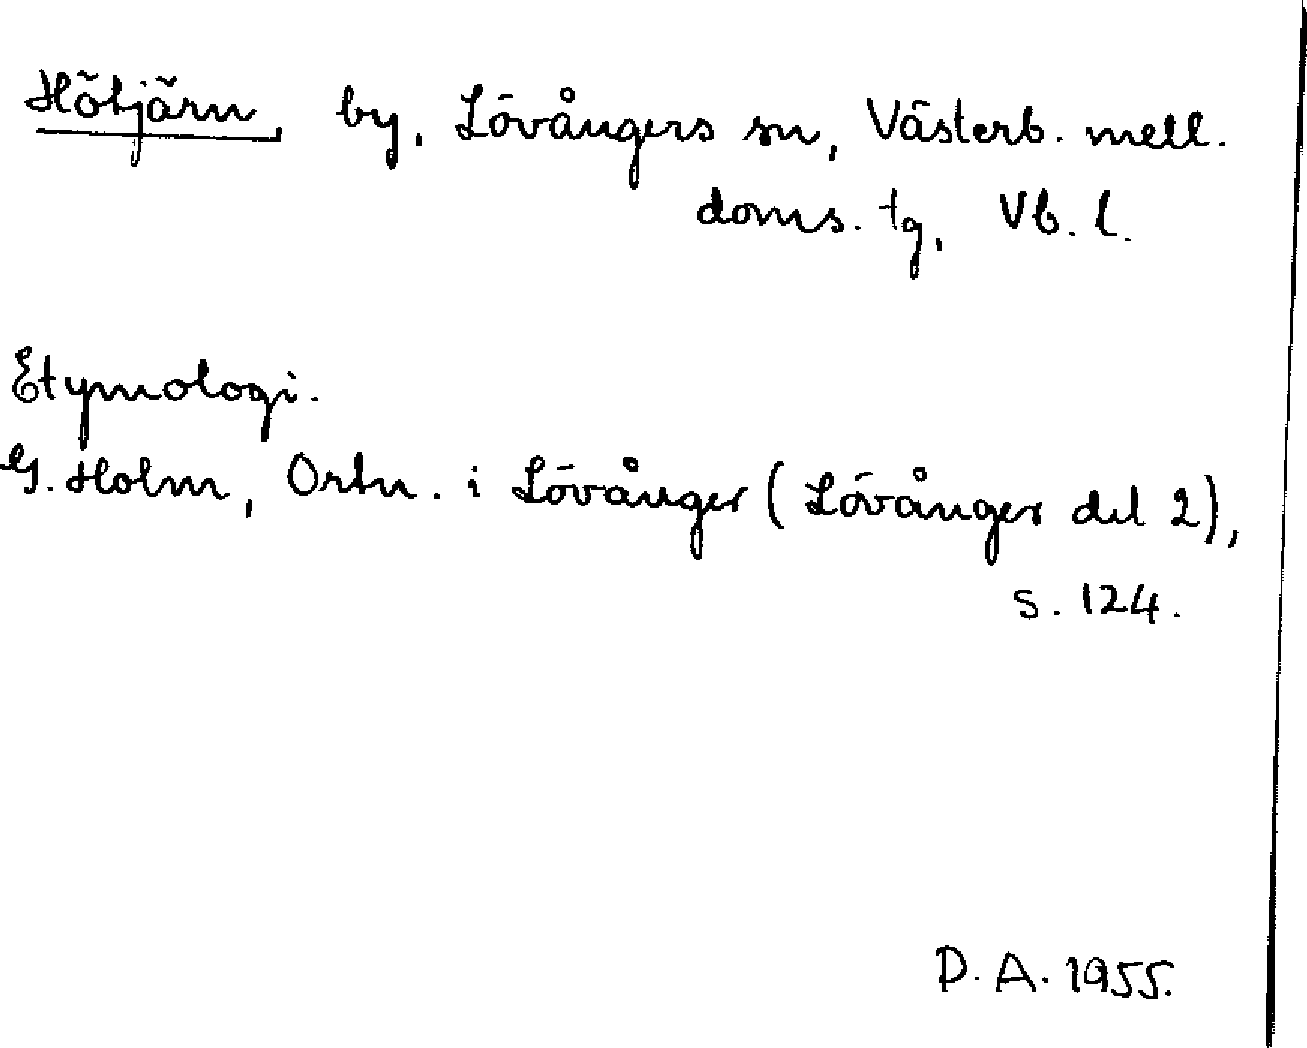 Hötjärn, by, Lövångers sn, Västerb. mell.
doms. tg, Vb. l.
Etymologi.
G. Holm, Ortn. i Lövånger (Lövånger del 2),
s. 124.
D. A. 1955.